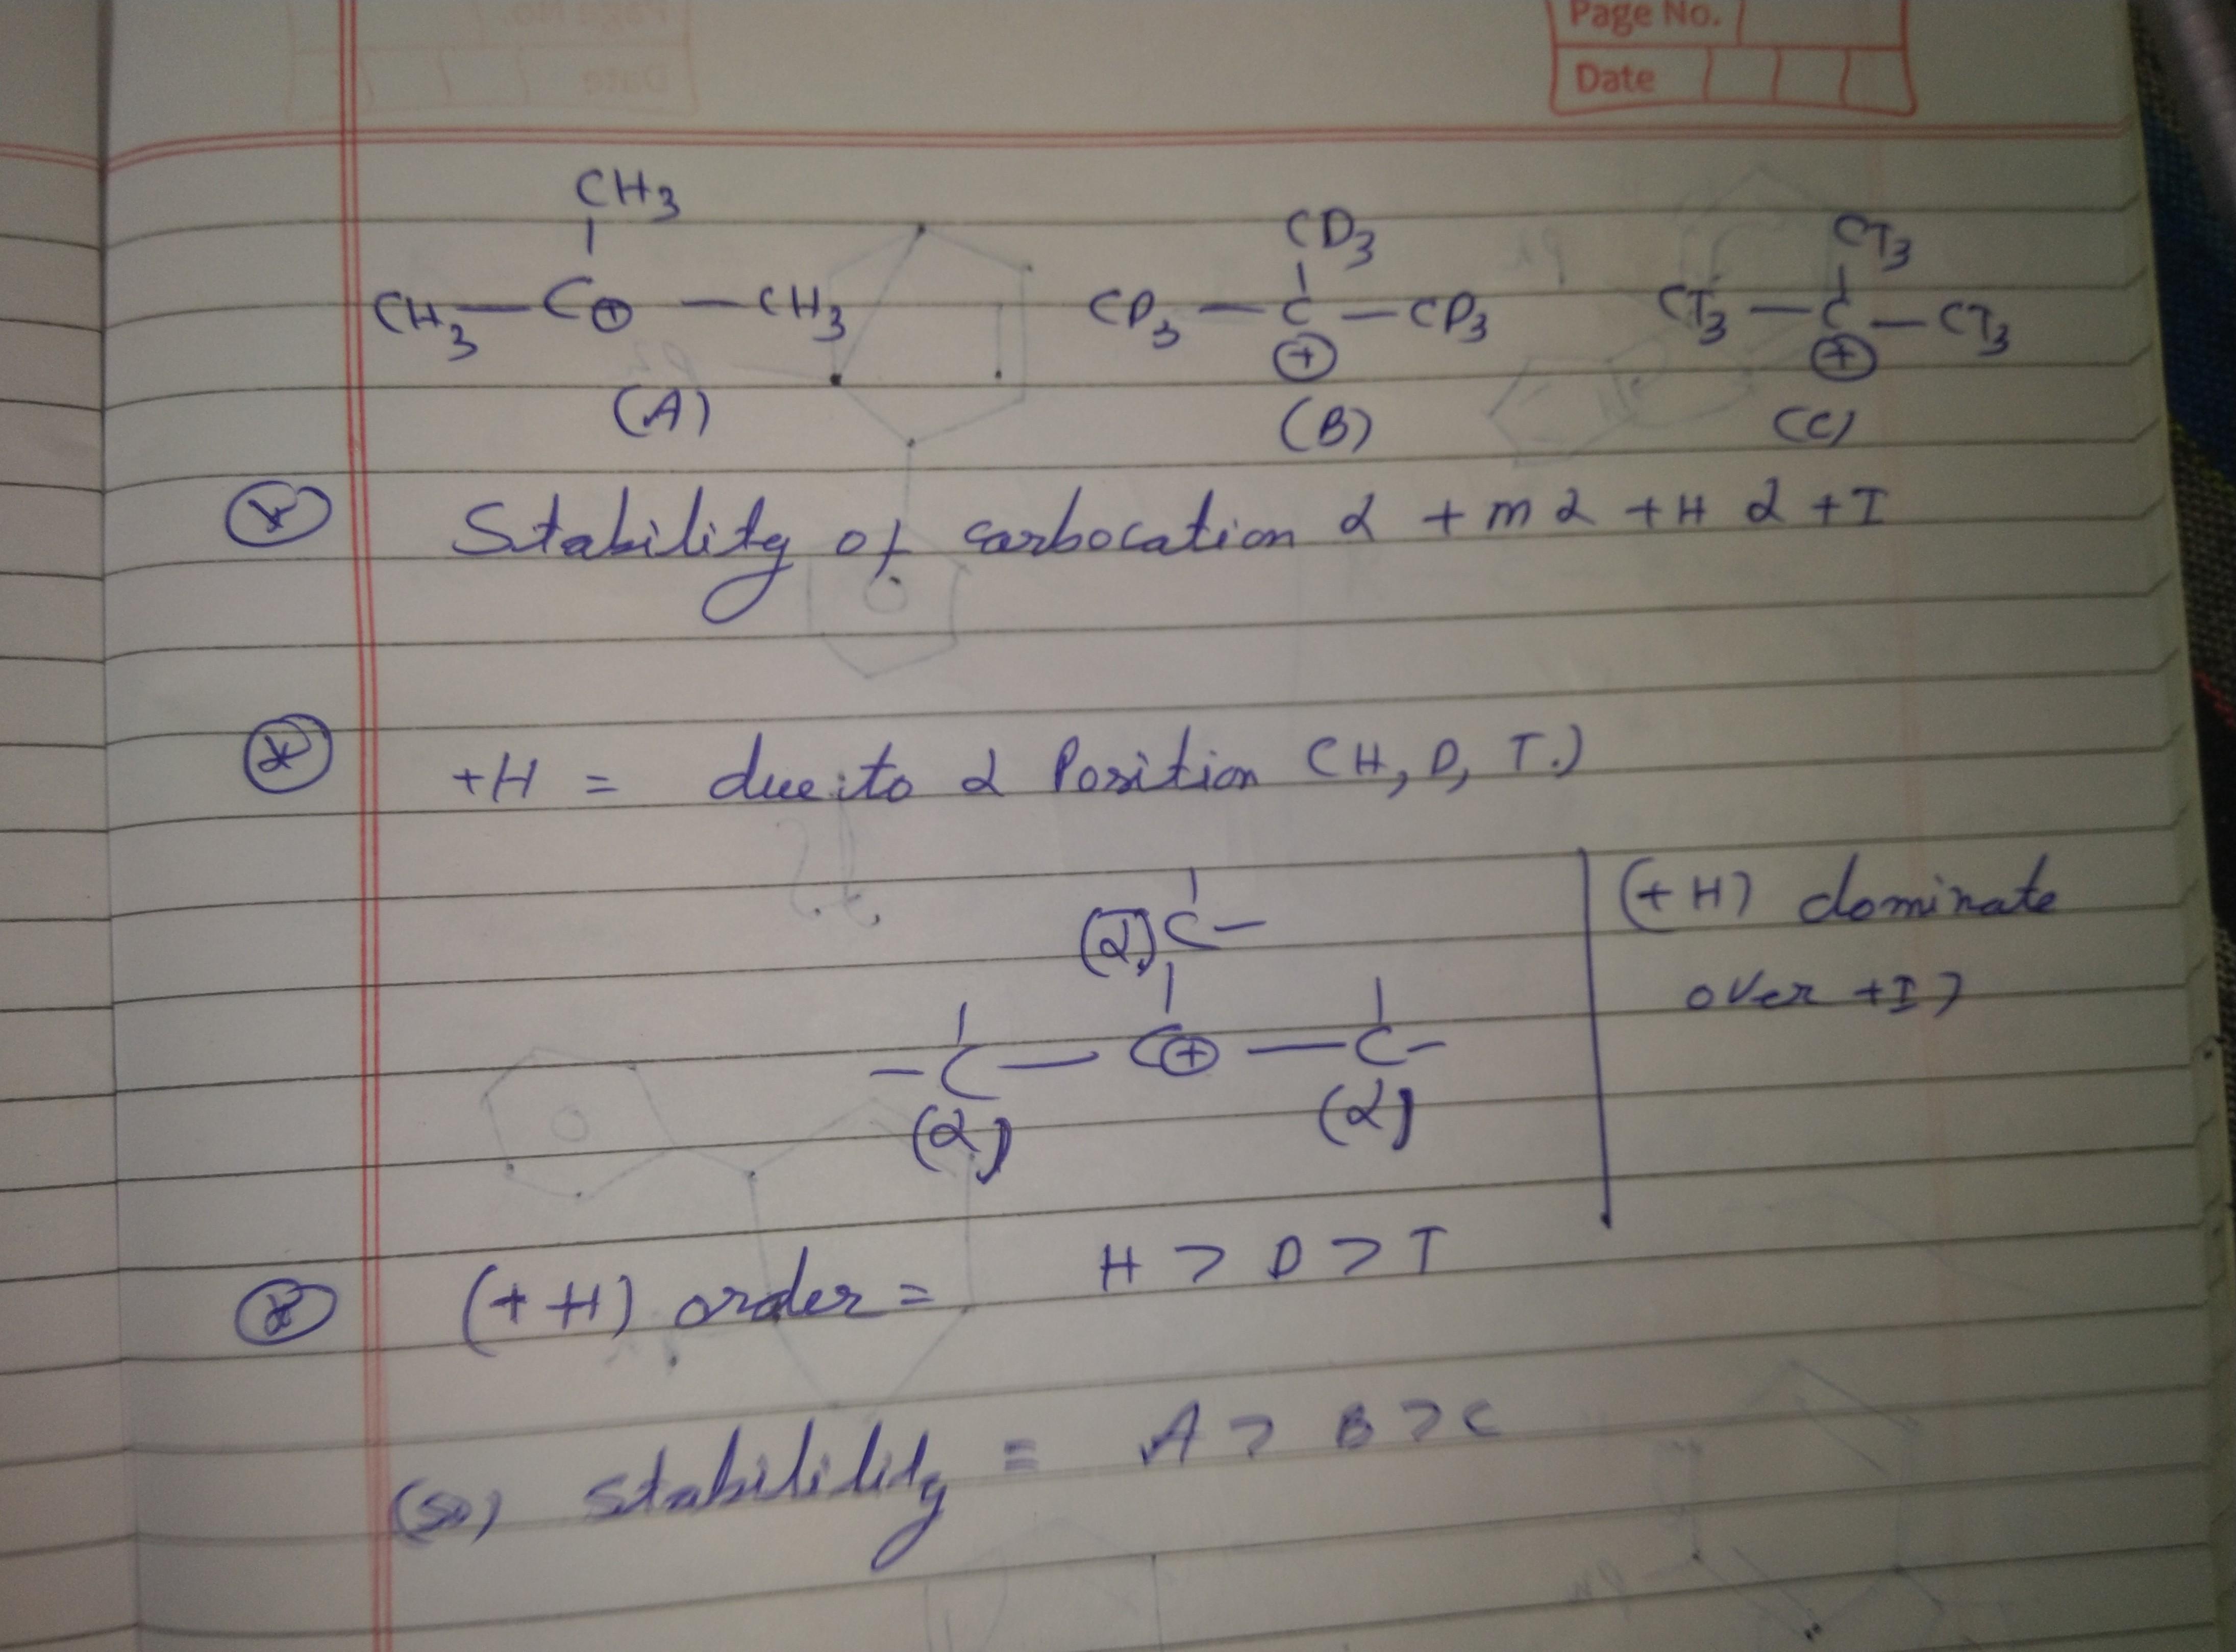 Page No.
Date
CH3
CH3 — C⊕ — CH3
(A)
CD3
CD3 — C — CD3
⊕
(B)
CT3
CT3 — C — CT3
⊕
(C)
Stability of carbocation α +m α +H α +I
+H = due to α Position (H, D, T.)
(α) C –
– C — C⊕ — C –
(α) (α)
(+H) dominate
over +I)
(+H) order = H > D > T
(so) stabilility = A > B > C